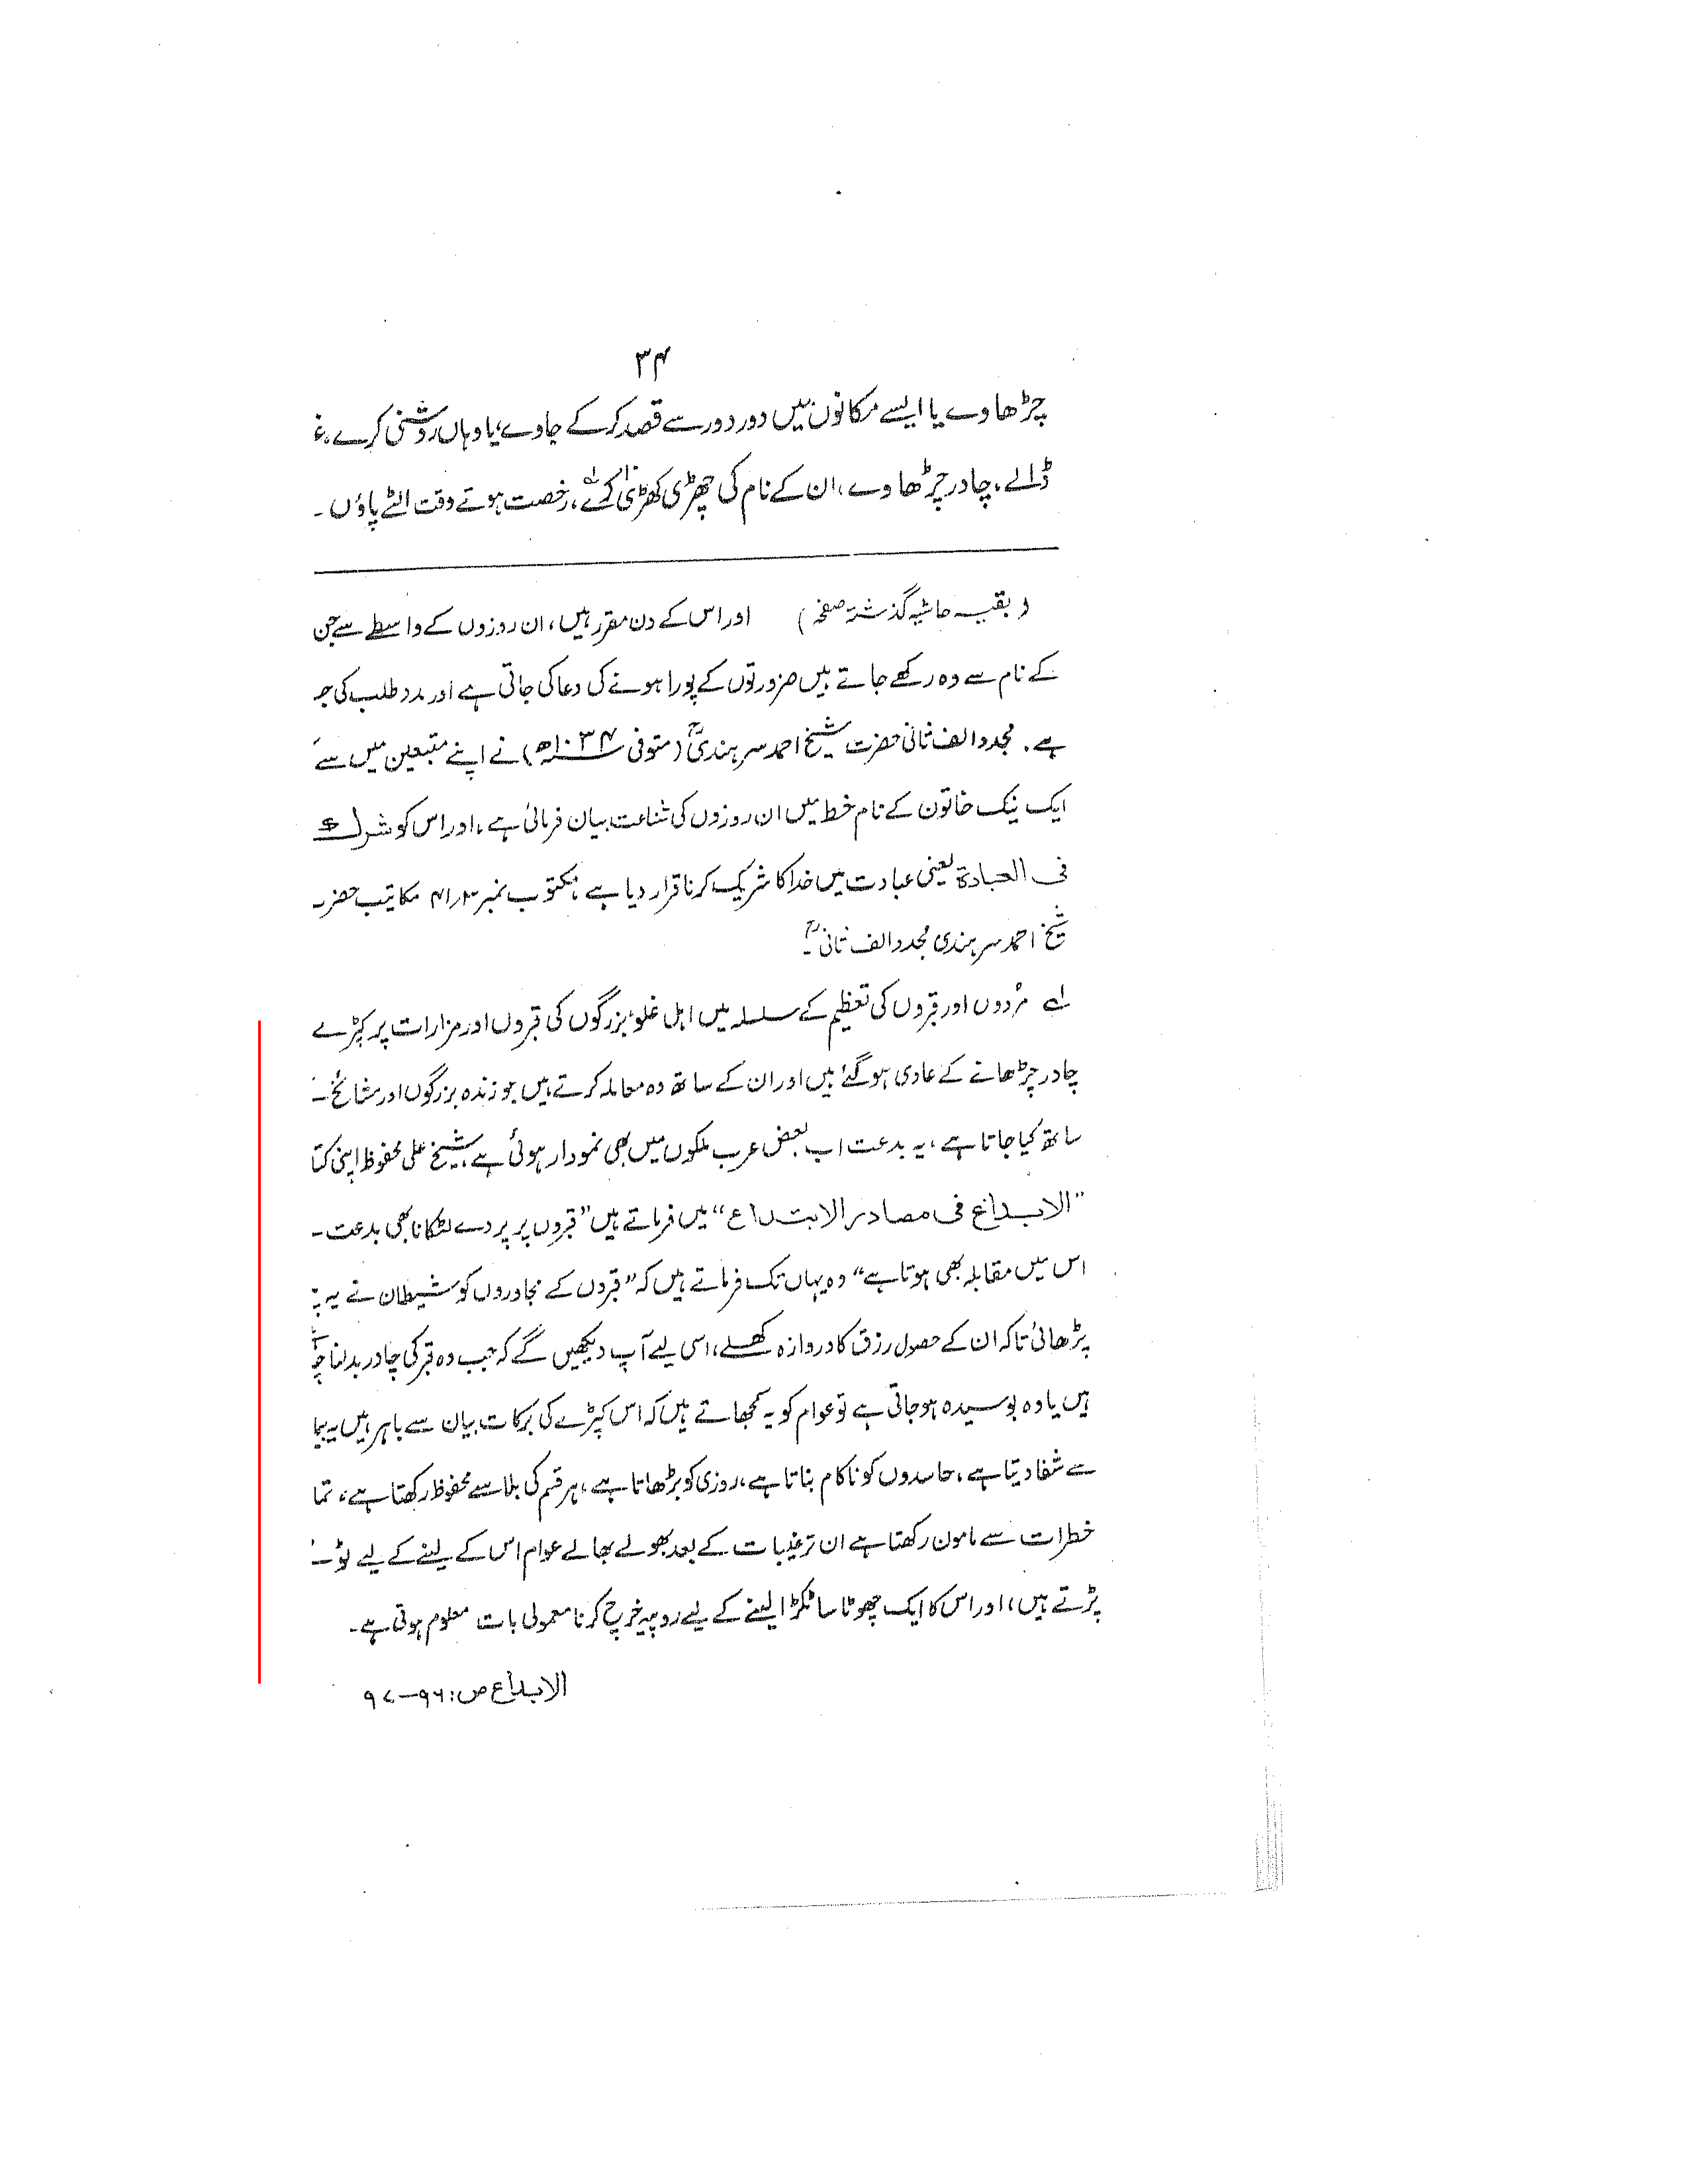 ۳۴
چڑھاوے یا ایسے مکانوں میں دور دور سے قصد کرکے جاوے، یا وہاں روشنی کرے، غ
ڈالے، چادر چڑھاوے، ان کے نام کی چھڑی کھڑی کرے، رخصت ہوتے وقت الٹے پاؤں
(بقیہ حاشیہ گذشتہ صفحہ) اور اس کے دن مقرر ہیں، ان روزوں کے واسطے سے جن
کے نام سے وہ رکھے جاتے ہیں ضرورتوں کے پورا ہونے کی دعا کی جاتی ہے اور مدد طلب کی جـ
ہے۔ مجدد الف ثانی حضرت شیخ احمد سرہندیؒ (متوفی ۱۰۳۴ھ) نے اپنے متبعین میں سے
ایک نیک خاتون کے نام خط میں ان روزوں کی شناعت بیان فرمائی ہے، اور اس کو شرك
فی العبادة یعنی عبادت میں خدا کا شریک کرنا قرار دیا ہے، مکتوب نمبر ۴۱٫۳ مکاتیب حضر
شیخ احمد سرہندی مجدد الف ثانیؒ۔
لے مُردوں اور قبروں کی تعظیم کے سلسلہ میں اہل غلو بزرگوں کی قبروں اور مزارات پر کپڑے
چادر چڑھانے کے عادی ہو گئے ہیں اور ان کے ساتھ وہ معاملہ کرتے ہیں جو زندہ بزرگوں اور مشائخ
ساتھ کیا جاتا ہے، یہ بدعت اب بعض عرب ملکوں میں بھی نمودار ہوئی ہے، شیخ علی محفوظ اپنی کتا
”الابداع فی مصادر الابتداع“ میں فرماتے ہیں ”قبروں پر پردے لٹکانا بھی بدعت
اس میں مقابلہ بھی ہوتا ہے“ وہ یہاں تک فرماتے ہیں کہ ”قبروں کے مجاوروں کو شیطان نے یہ
پڑھائی تاکہ ان کے حصول رزق کا دروازہ کھلے، اسی لیے آپ دیکھیں گے کہ جب وہ قبر کی چادر بدلنا
ہیں یا وہ بوسیدہ ہو جاتی ہے تو عوام کو یہ سمجھاتے ہیں کہ اس کپڑے کی برکات بیان سے باہر ہیں یہ بیما
سے شفا دیتا ہے، حاسدوں کو ناکام بناتا ہے، روزی کو بڑھاتا ہے، ہر قسم کی بلا سے محفوظ رکھتا ہے، تما
خطرات سے مامون رکھتا ہے ان ترغیبات کے بعد بھولے بھالے عوام اس کے لینے کے لیے ٹوٹ
پڑتے ہیں، اور اس کا ایک چھوٹا سا ٹکڑا لینے کے لیے روپیہ خرچ کرنا معمولی بات معلوم ہوتی ہے۔
الابداع ص: ۹۶–۹۷